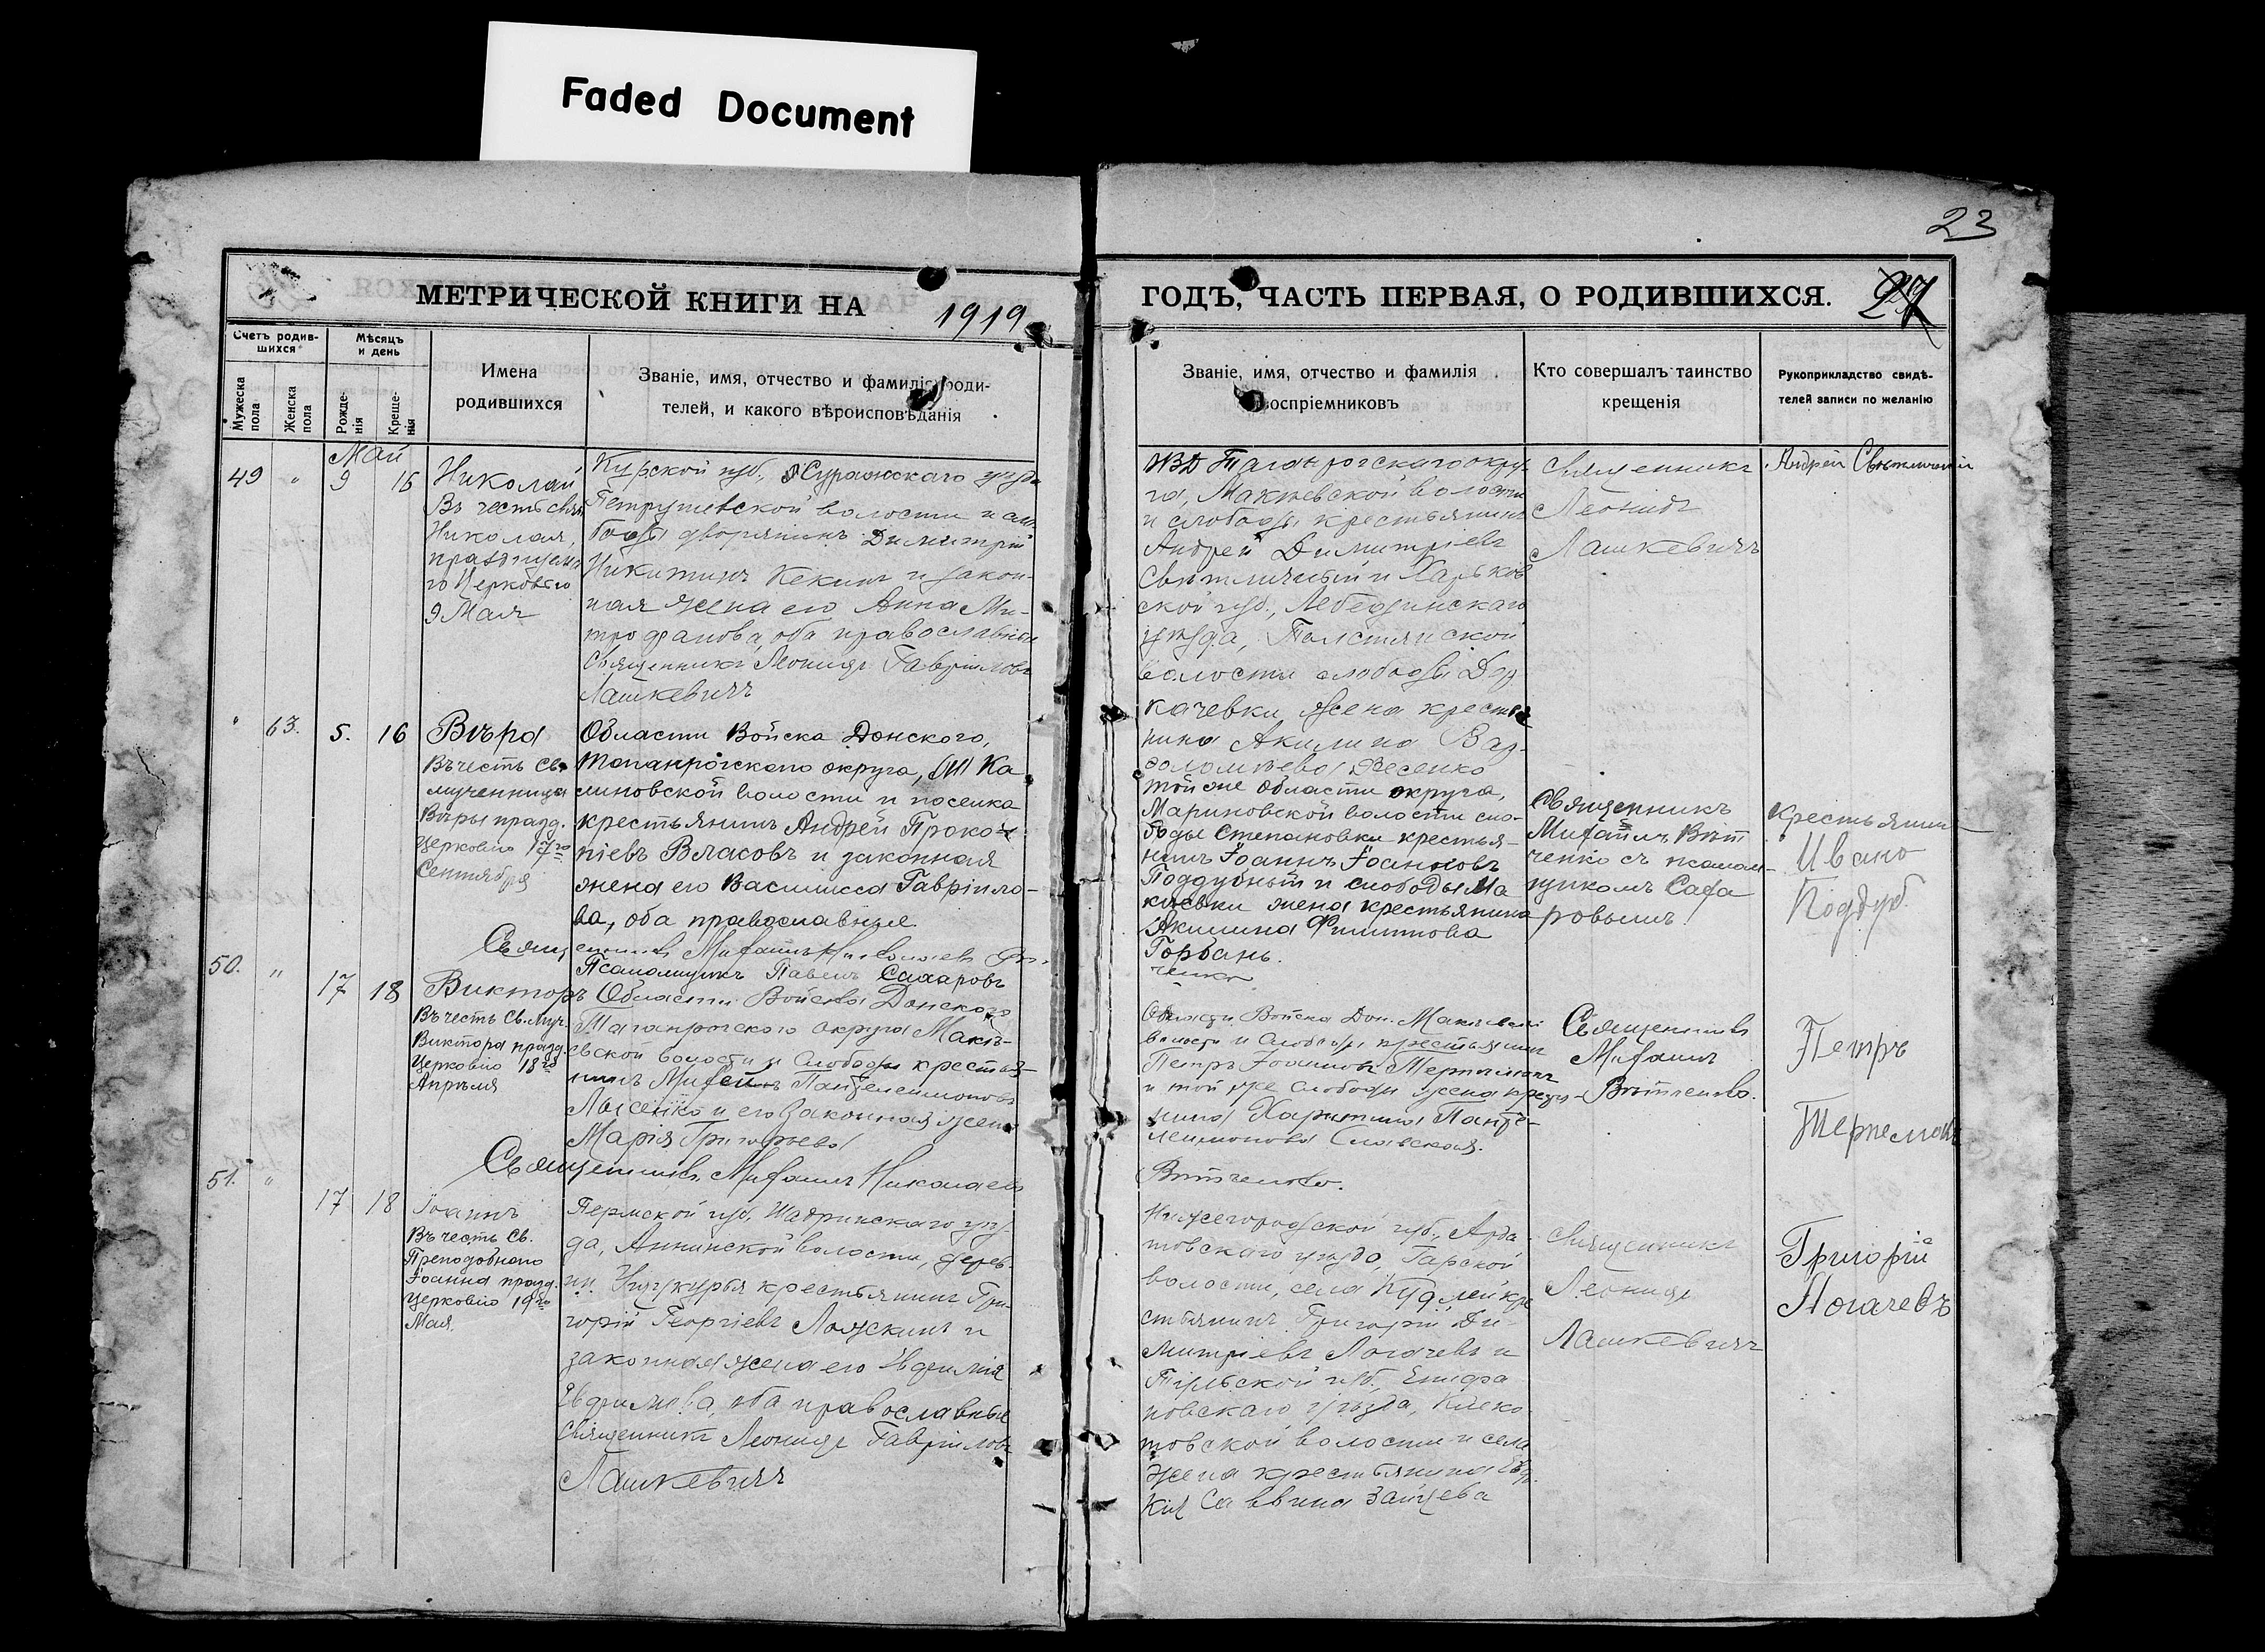 Faded Document
23
МЕТРИЧЕСКОЙ КНИГИ НА 1919
ГОДЪ, ЧАСТЬ ПЕРВАЯ, О РОДИВШИХСЯ. 27
Счетъ родив-
шихся
Мужеска
пола
Женска
пола
Мѣсяцъ
и день
Рожде-
нія
Креще-
нія
Имена
родившихся
Званіе, имя, отчество и фамилія роди-
телей, и какого вѣроисповѣданія
Званіе, имя, отчество и фамилія
воспріемниковъ
Кто совершалъ таинство
крещенія
Рукоприкладство свидѣ-
телей записи по желанію
Май
49 " 9 16
Николай
Въ честь свят
Николая,
празднуема
го Церковію
9 Мая
Курской губ.,
волости и сло
боды дворянинъ Димитрій
Никитинъ Кекинъ и закон-
ная жена его Анна Ми-
трофанова, оба православные
Священникъ Леонидъ Гавріиловъ
Лашкевичъ
ВД Таганрогскаго окру-
га, Макѣевской волости
и слободы крестьянинъ
Андрей Димитріевъ
Свѣтличный и Харьков
ской губ., Лебединскаго
уѣзда,
волости слободы Дер
качевки, жена крестья
нина Акилина Вар-
фоломѣева
Священникъ
Леонидъ
Лашкевичъ
Андрей Свѣтличный
" 63. 5. 16
Вѣра
Въ честь Св.
мученницы
Вѣры празд.
Церковію 17го
Сентября
Области Войска Донского,
Таганрогскаго округа, Ка
линовской волости и поселка
крестьянинъ Андрей Проко-
піевъ Власовъ и законная
жена его Василисса Гавріило-
ва, оба православные
Священникъ Михаилъ Николаевъ Вѣт-
Псаломщикъ Павелъ Сахаровъ
той же области округа,
Мариновской волости сло-
боды Степановки крестья-
нинъ Іоаннъ Іоанновъ
Поддубный и слободы Ма
кѣевки жена крестьянина
Акилина Филиппова
Горбань.
ченко
Священникъ
Михаилъ Вѣт
ченко съ псалом-
щикомъ Саха
ровымъ
Крестьянин
Ивано
Поддуб.
50. " 17 18
Викторъ
Въ честь Св. Муч.
Виктора празд.
Церковію 18го
Апрѣля
Области Войска Донского
Таганрогского округа Макѣ-
евской волости и слободы крестья-
нинъ Пантелеимоновъ
Лысенко и его законная жена
Марія Григорьева
Священникъ Михаилъ Николаевъ
Области Войска Дон. Макѣевской
волости и слободы крестьянинъ
Петръ Іоанновъ
и той же слободы жена крестья-
нина Харитина Панте-
леимонова Славская.
Вѣтченко.
Священникъ
Михаилъ
Вѣтченко.
Петръ
51. " 17 18
Іоаннъ
Въ честь Св.
Преподобнаго
Іоанна празд.
Церковію 19го
Мая.
Пермской губ. Шадринскаго уѣз-
да, Аннинской волости, дерев-
ни крестьянинъ Гри-
горій Георгіевъ Ложкинъ и
законная жена его Евфимія
Евфимова, оба православные
Священникъ Леонидъ Гавріиловъ
Лашкевичъ
Нижегородской губ., Арда
товскаго уѣзда, Гарской
волости, села кре
стьянинъ Григорій Ди-
митріевъ Логачевъ и
Тульской губ., Епифа
новскаго уѣзда,
товской волости и села
жена крестьянина Евдо
кія Саввина Зайцева
Священникъ
Леонидъ
Лашкевичъ
Григорій
Логачевъ